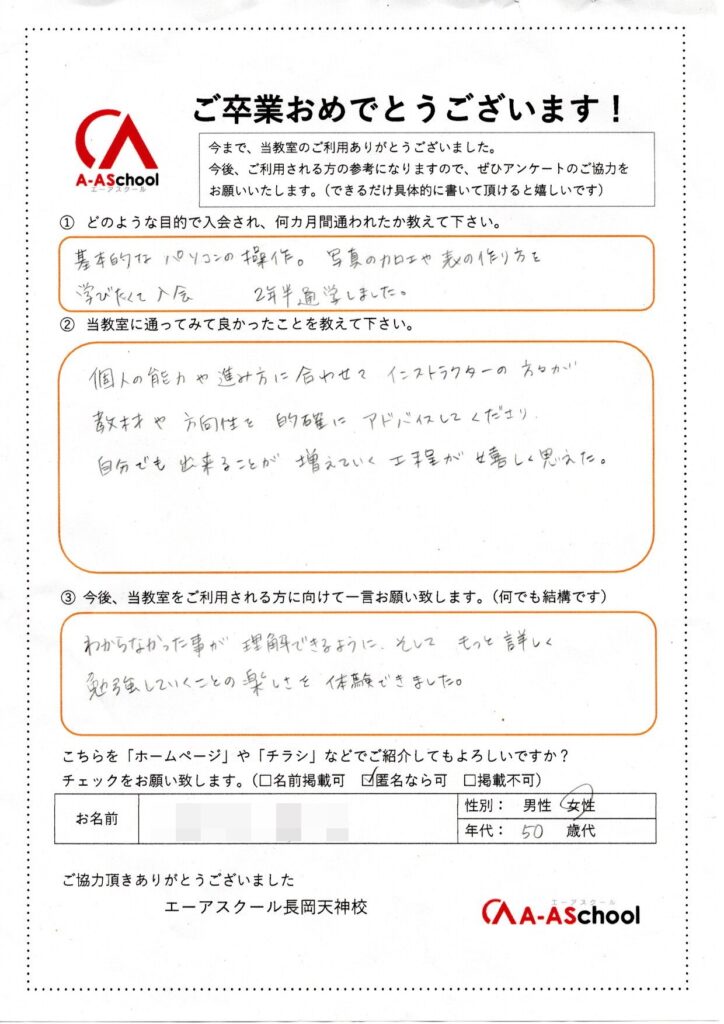 ご卒業おめでとうございます！
A-ASchool
エーアスクール
今まで、当教室のご利用ありがとうございました。
今後、ご利用される方の参考になりますので、ぜひアンケートのご協力を
お願いいたします。（できるだけ具体的に書いて頂けると嬉しいです）
① どのような目的で入会され、何カ月間通われたか教えて下さい。
基本的な パソコンの 操作。 写真の加工や 表の作り方を
学びたくて 入会 2年半通学しました。
② 当教室に通ってみて良かったことを教えて下さい。
個人の能力や 進み方に 合わせて インストラクターの 方々が
教材や 方向性を 的確に アドバイスしてくださり、
自分でも 出来ることが 増えていく 工程が 嬉しく思えた。
③ 今後、当教室をご利用される方に向けて一言お願い致します。（何でも結構です）
わからなかった事が 理解できるように、そして もっと 詳しく
勉強していくことの 楽しさを 体験できました。
こちらを「ホームページ」や「チラシ」などでご紹介してもよろしいですか？
チェックをお願い致します。（□名前掲載可 ☑匿名なら可 □掲載不可）
お名前
性別： 男性 女性
年代： 50 歳代
ご協力頂きありがとうございました
エーアスクール長岡天神校
エーアスクール
A-ASchool